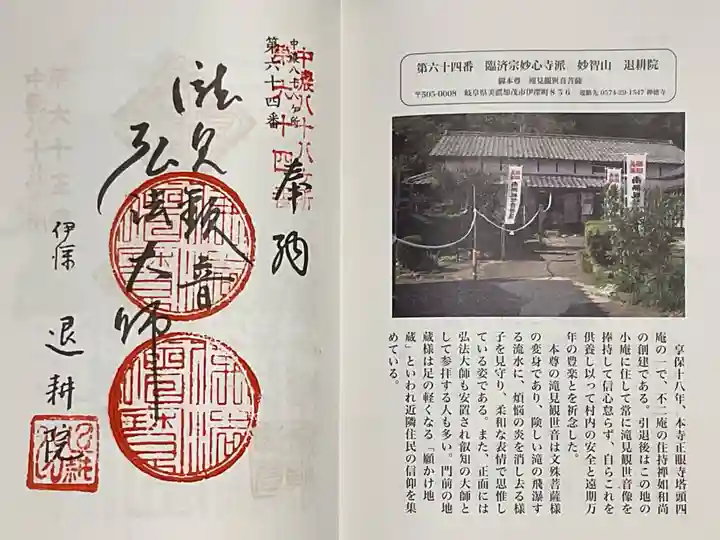 第六十四番　臨済宗妙心寺派　妙智山　退耕院
御本尊　滝見観世音菩薩
〒505-0008　岐阜県美濃加茂市伊深町876　連絡先 0574-29-1547 禅徳寺
享保十八年、本寺正眼寺塔頭四
庵の一で、不二庵の住持禅如和尚
の創建である。引退後はこの地の
小庵に住して常に滝見観世音像を
捧持して信心怠らず、自らこれを
供養し以って村内の安全と遠期万
年の豊楽とを祈念した。
本尊の滝見観世音は文殊菩薩様
の変身であり、険しい滝の飛瀑す
る流水に、煩悩の炎を消し去る様
子を見守り、柔和な表情で思惟し
ている姿である。また、正面には
弘法大師も安置され叡知の大師と
して参拝する人も多い。門前の地
蔵様は足の軽くなる「願かけ地
蔵」といわれ近隣住民の信仰を集
めている。
奉納
中濃八十八ヶ所
第六十四番
滝見観音
弘法大師
伊深
退耕院